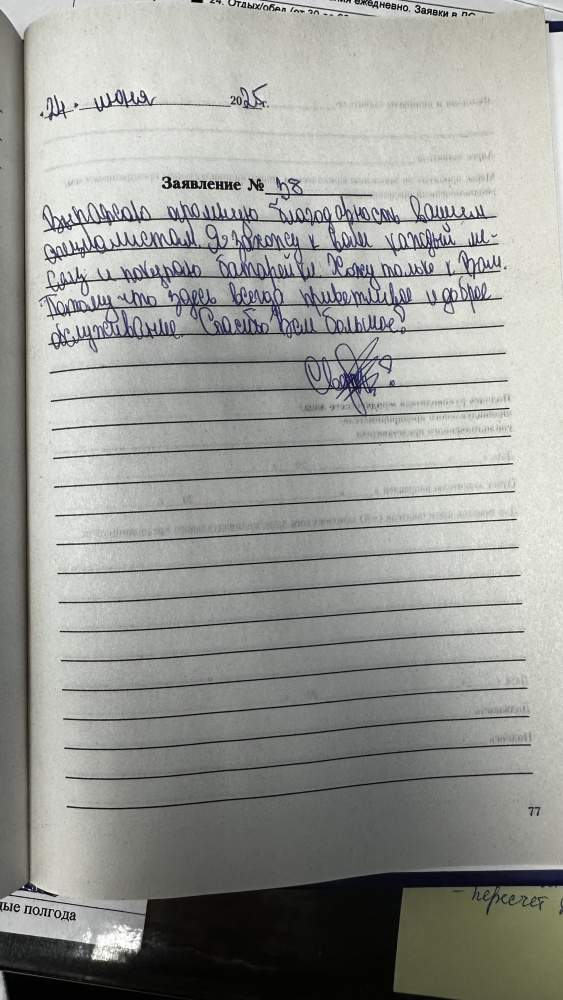 24. Отдых/обед
ежедневно. Заявки в
24. июня 2025г.
Заявление № 38
Выражаю огромную благодарность Вашим
специалистам. Я захожу к вам каждый ме-
сяц и покупаю батарейки. Хожу только к Вам.
Потому что здесь всегда приветливое и доброе
обслуживание. Спасибо Вам большое!
77
полгода
- пересчет